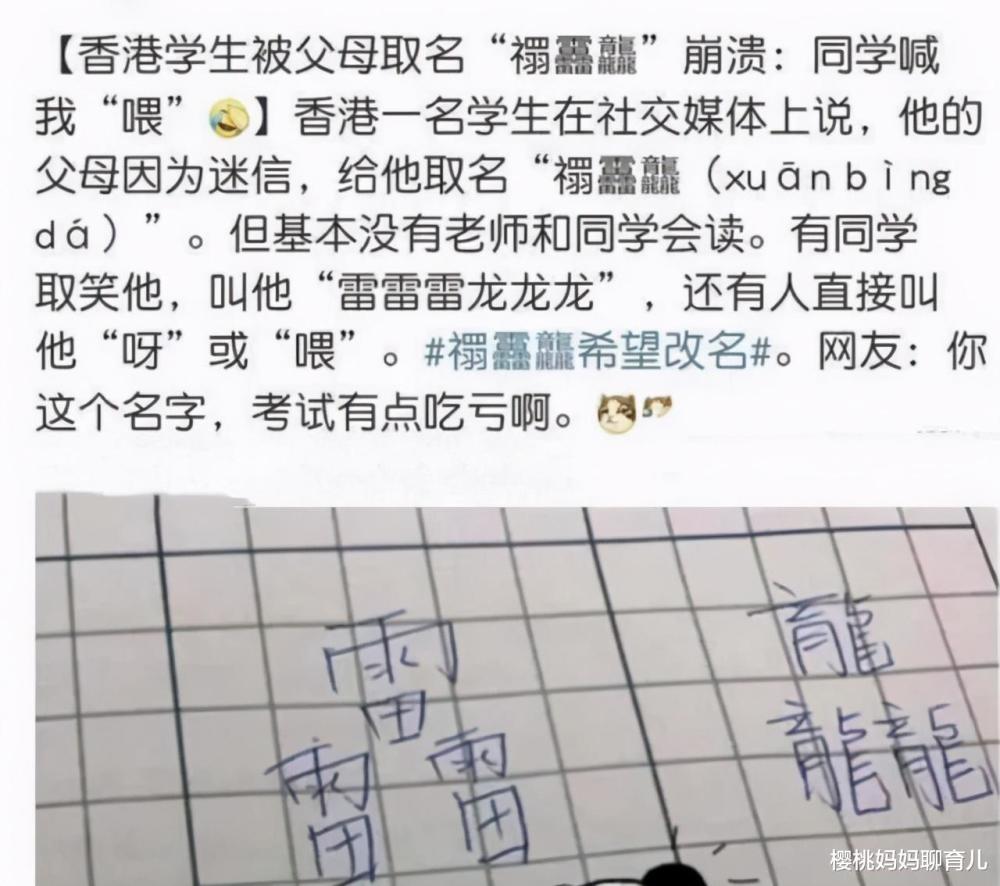 【香港学生被父母取名“禤靐龘”崩溃：同学喊
我“喂”】香港一名学生在社交媒体上说，他的
父母因为迷信，给他取名“禤靐龘（xuān bìng
dá）”。但基本没有老师和同学会读。有同学
取笑他，叫他“雷雷雷龙龙龙”，还有人直接叫
他“呀”或“喂”。#禤靐龘希望改名#。网友：你
这个名字，考试有点吃亏啊。
靐 龘
樱桃妈妈聊育儿